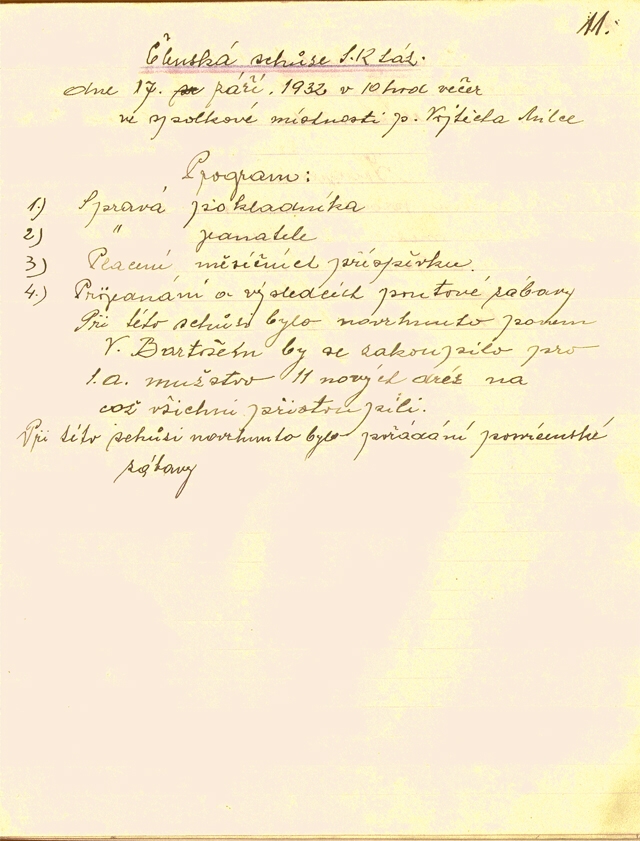 11.
Členská schůse S.K Láz.
dne 17. září. 1932 v 10 hod večer
ve spolkové místnosti p. Vojtěcha
Program:
1.) Spravá pokladníka
2) " jenatele
3) Placení měsíčních příspěvku.
4.) Projednání o výsledcích pouťové zábavy
Při této schůsi bylo navrhnuto panem
V. Bartošem by se zakoupilo pro
I.a. mužstvo 11 nových dréz na
což všichni přistoupili.
Při této schůsi navrhnuto bylo pořádání posvícenské
zábavy